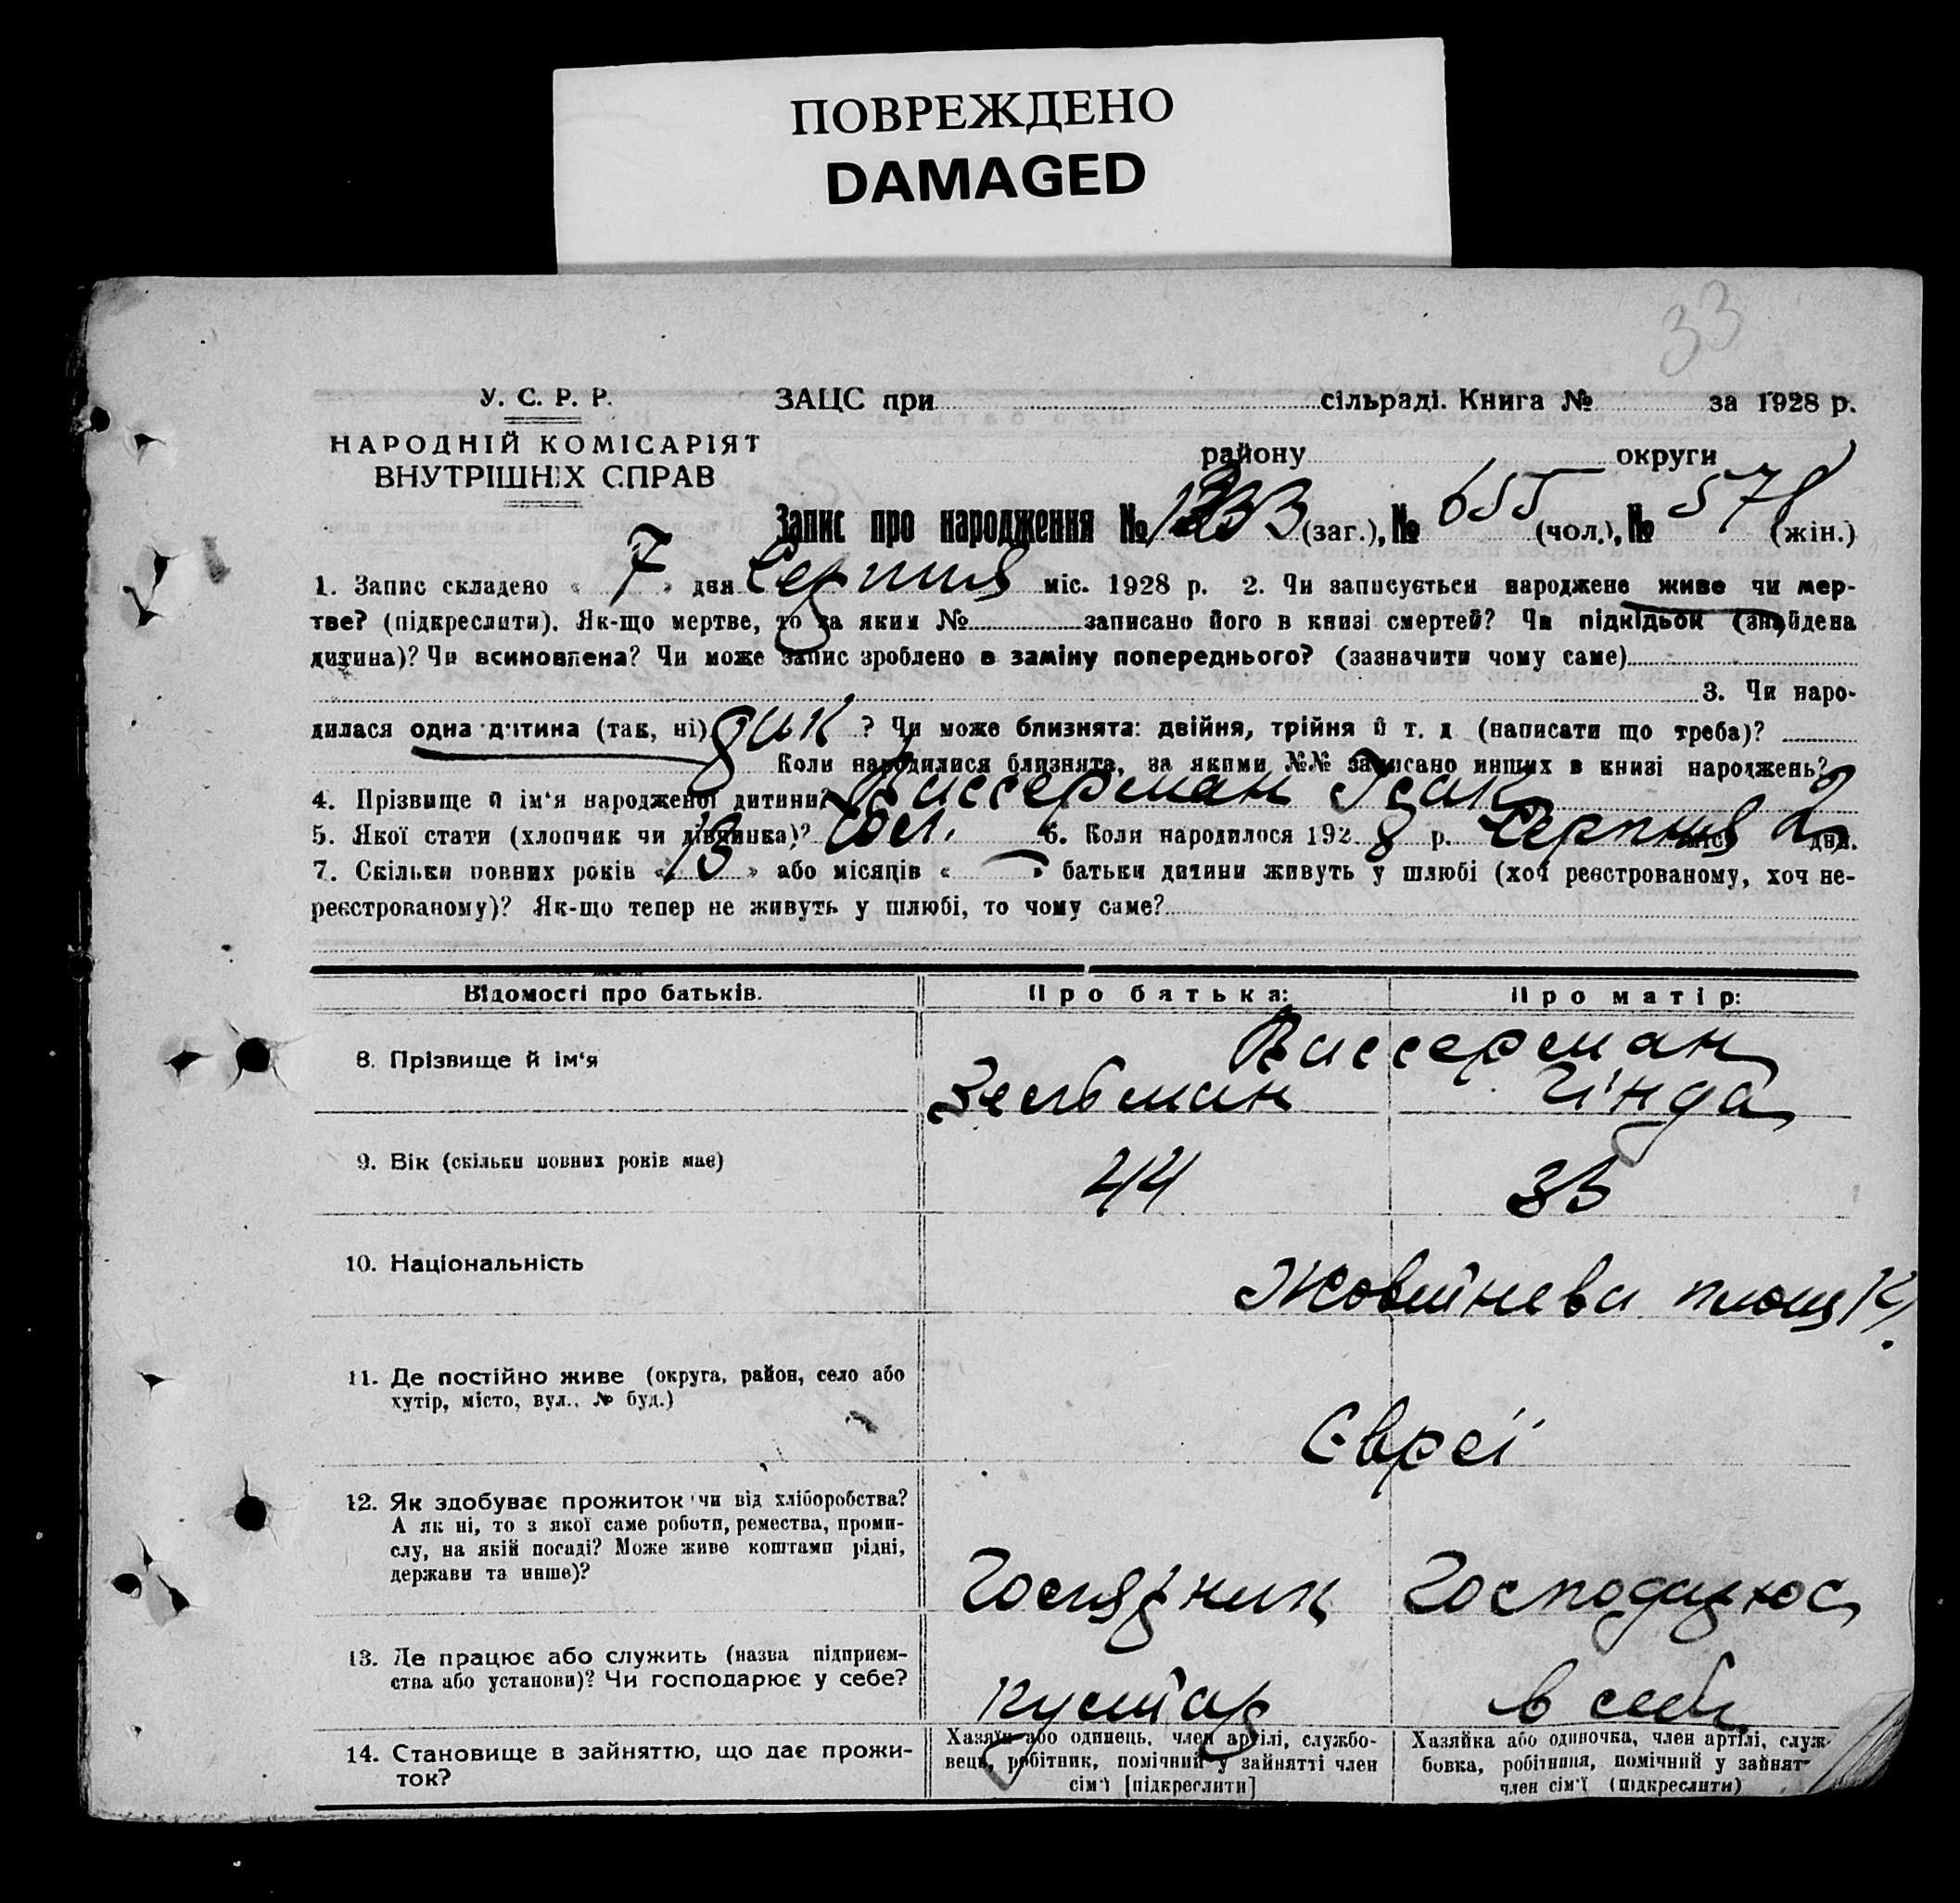 ПОВРЕЖДЕНО
DAMAGED
33
У. С. Р. Р.
НАРОДНІЙ КОМІСАРІЯТ
ВНУТРІШНІХ СПРАВ
ЗАЦС при сільраді. Книга № за 1928 р.
району округи
Запис про народження № 1233 (заг.), № 655 (чол.), № 578 (жін.)
1. Запис складено « 7 » дня Серпня міс. 1928 р. 2. Чи записується народжене живе чи мер-
тве? (підкреслити). Як-що мертве, то за яким № записано його в книзі смертей? Чи підкідьок (знайдена
дитина)? Чи всиновлена? Чи може запис зроблено в заміну попереднього? (зазначити чому саме)
3. Чи наро-
дилася одна дитина (так, ні) ? Чи може близнята: двійня, трійня й т. д (написати що треба)?
Коли народилися близнята, за якими №№ записано инших в книзі народжень?
4. Прізвище й ім'я народженої дитини? Вассерман Ізак
5. Якої стати (хлопчик чи дівчинка)? чол. 6. Коли народилося 1928 р. Серпня міс. 2 дня.
7. Скільки повних років « 13 » або місяців « — » батьки дитини живуть у шлюбі (хоч реєстрованому, хоч не-
реєстрованому)? Як-що тепер не живуть у шлюбі, то чому саме?
Відомості про батьків. Про батька: Про матір:
Вассерман
8. Прізвище й ім'я
Зельман Гінда
9. Вік (скільки повних років має) 44 35
10. Національність
Жовтнева площ
11. Де постійно живе (округа, район, село або
хутір, місто, вул., № буд.)
Євреї
12. Як здобуває прожиток чи від хліборобства?
А як ні, то з якої саме роботи, ремества, проми-
слу, на якій посаді? Може живе коштами рідні,
держави та инше)?
Господарює
13. Де працює або служить (назва підприєм-
ства або установи)? Чи господарює у себе?
кустар в себе
14. Становище в зайняттю, що дає прожи-
ток?
Хазяїн або одинець, член артілі, службо-
вець, робітник, помічний у зайнятті член
сім'ї [підкреслити]
Хазяйка або одиночка, член артілі, служ-
бовка, робітниця, помічний у зайнят
член сім'ї (підкреслити)